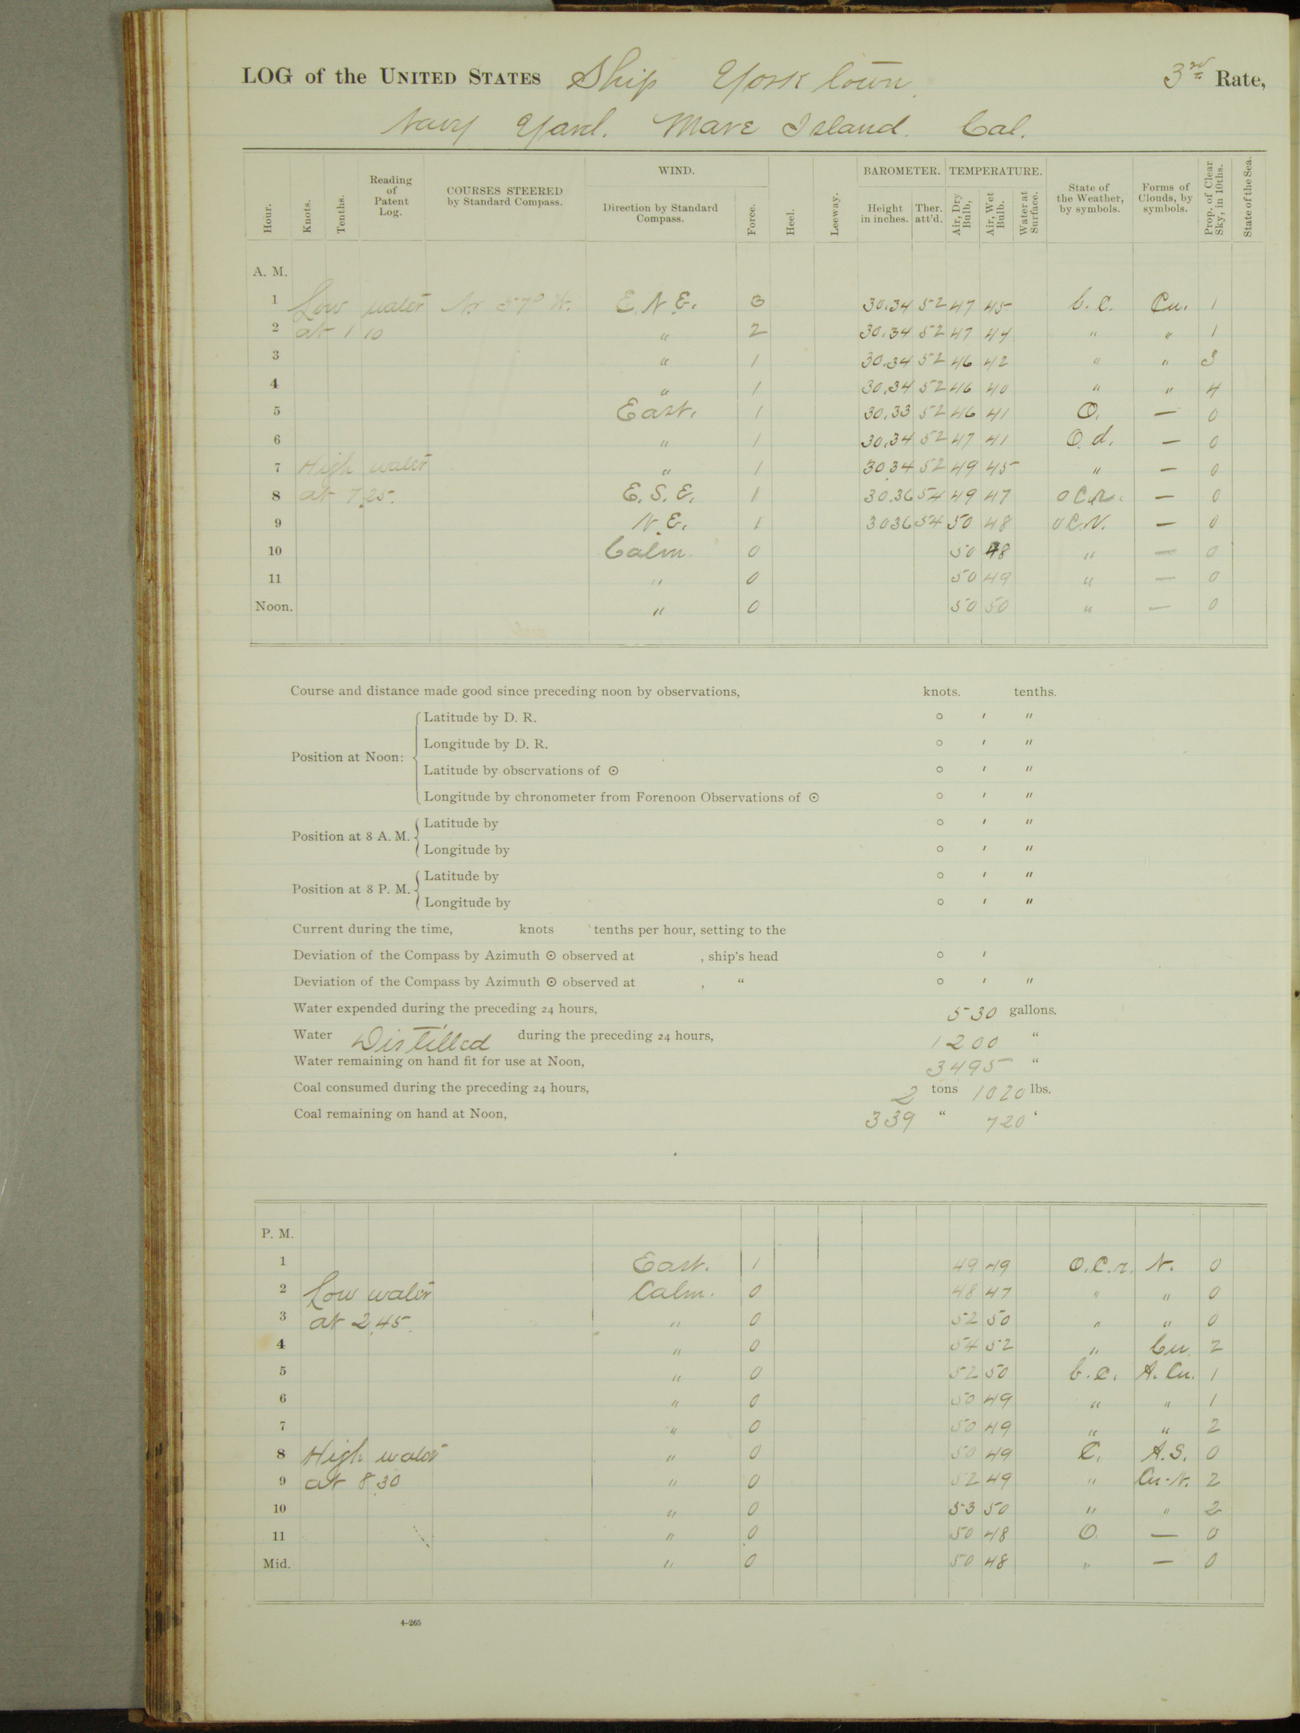 LOG of the UNITED STATES Ship Yorktown. 3rd Rate,
Navy Yard. Mare Island. Cal.
Hour. Knots. Tenths. Reading of Patent Log. COURSES STEERED by Standard Compass. WIND. Direction by Standard Compass. Force. Heel. Leeway. BAROMETER. Height in inches. Ther. att'd. TEMPERATURE. Air, Dry Bulb. Air, Wet Bulb. Water at Surface. State of the Weather, by symbols. Forms of Clouds, by symbols. Prop. of Clear Sky, in 10ths. State of the Sea.
A. M.
1 Low water N 57° W. E. N. E. 3 30.34 52 47 45 b. c. Cu. 1
2 at 1 10 " 2 30.34 52 47 44 " " 1
3 " 1 30.34 52 46 42 " " 3
4 " 1 30.34 52 46 40 " " 4
5 East. 1 30.33 52 46 41 O. — 0
6 " 1 30.34 52 47 41 O. d. — 0
7 High water " 1 30 34 52 49 45 " — 0
8 at 7.25. E. S. E. 1 30.36 54 49 47 O C. r. — 0
9 N. E. 1 30 36 54 50 48 O C. N. — 0
10 Calm. 0 50 48 " — 0
11 " 0 50 49 " — 0
Noon. " 0 50 50 " — 0
Course and distance made good since preceding noon by observations, knots. tenths.
Position at Noon:
Latitude by D. R. ° ′ ″
Longitude by D. R. ° ′ ″
Latitude by observations of ⊙ ° ′ ″
Longitude by chronometer from Forenoon Observations of ⊙ ° ′ ″
Position at 8 A. M.
Latitude by ° ′ ″
Longitude by ° ′ ″
Position at 8 P. M.
Latitude by ° ′ ″
Longitude by ° ′ ″
Current during the time, knots tenths per hour, setting to the
Deviation of the Compass by Azimuth ⊙ observed at , ship's head ° ′
Deviation of the Compass by Azimuth ⊙ observed at , " ° ′ ″
Water expended during the preceding 24 hours, 530 gallons.
Water Distilled during the preceding 24 hours, 1200 "
Water remaining on hand fit for use at Noon, 3495 "
Coal consumed during the preceding 24 hours, 2 tons 1020 lbs.
Coal remaining on hand at Noon, 339 " 720 "
P. M.
1 East. 1 49 49 O. C. r. N. 0
2 Low water Calm. 0 48 47 " " 0
3 at 2.45. " 0 52 50 " " 0
4 " 0 54 52 " Cu. 2
5 " 0 52 50 b. c. A. Cu. 1
6 " 0 50 49 " " 1
7 " 0 50 49 " " 2
8 High water " 0 50 49 C. A. S. 0
9 at 8.30 " 0 52 49 " Cu-N. 2
10 " 0 53 50 " " 2
11 " 0 50 48 O. — 0
Mid. " 0 50 48 " — 0
4—265